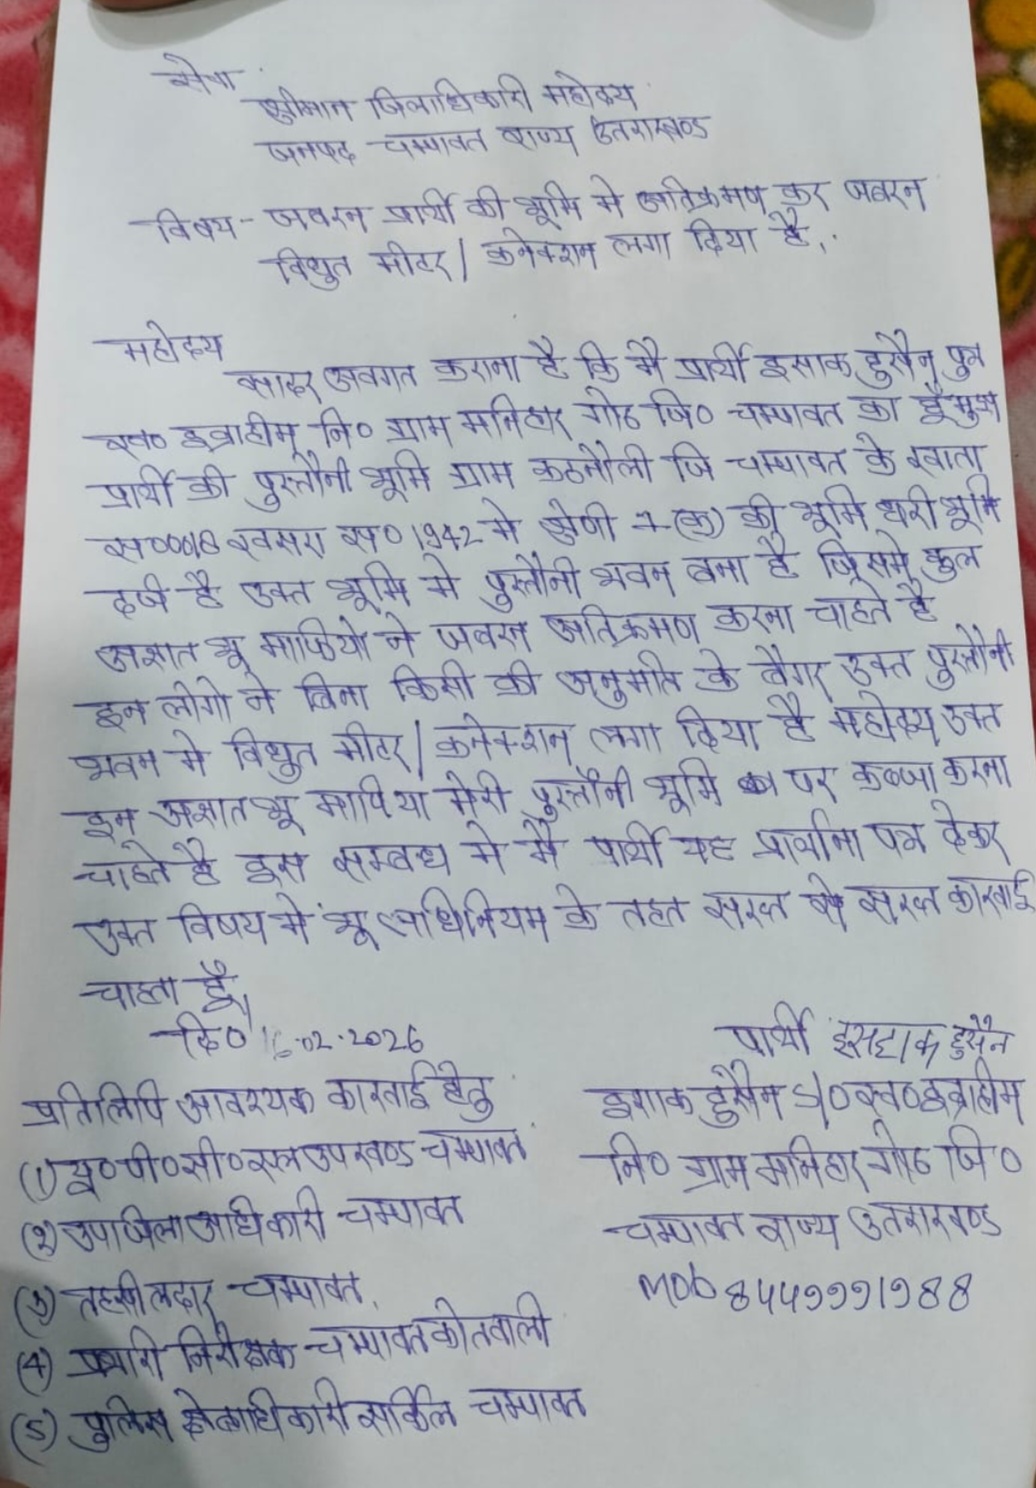 सेवा
श्रीमान जिलाधिकारी महोदय
जनपद चम्पावत राज्य उतराखण्ड
विषय - जबरन प्रार्थी की भूमि मे अतिक्रमण कर जबरन
विधुत मीटर / कनेक्शन लगा दिया है,.
महोदय
सादर अवगत कराना है कि मै प्रार्थी इसाक हुसैन पुत्र
स्व० इब्राहीम नि० ग्राम मनिहार गोठ जि० चम्पावत का हूँ मुझ
प्रार्थी की पुस्तौनी भूमि ग्राम कठनौली जि चम्पावत के खाता
स०0018 खसरा स० 1942 मे श्रेणी 1-(क) की भूमि धरी भूमि
दर्ज है उक्त भूमि मे पुस्तौनी भवन बना है जिसमे कुल
अज्ञात भू माफियो ने जबरन अतिक्रमण करना चाहते है
इन लोगो ने बिना किसी की अनुमति के बैगर उक्त पुस्तौनी
भवन मे विधुत मीटर / कनेक्शन लगा दिया है महोदय उक्त
इन अज्ञात भू मापिया मेरी पुस्तौनी भूमि पर कब्जा करना
चाहते है इस सम्बन्ध मे मै पार्थी यह प्रार्थाना पत्र देकर
उक्त विषय मे भू अधिनियम के तहत सख्त से सख्त कारवाई
चाहता हूँ,
दि० 16.02.2026
पार्थी इसहाक हुसैन
प्रतिलिपि आवश्यक कारवाई हेतु
इशाक हुसैन S/o स्व० इब्राहीम
(1) यू०पी०सी०एल उपखण्ड चम्पावत
नि० ग्राम मनिहार गोठ जि०
(2) उपाजिलाअधिकारी चम्पावत
चम्पावत राज्य उतराखण्ड
(3) तहसीलदार चम्पावत,
Mob 8449991988
(4) प्रभारी निरीक्षक चम्पावत कोतवाली
(5) पुलिस क्षेत्राधिकारी सर्किल चम्पावत